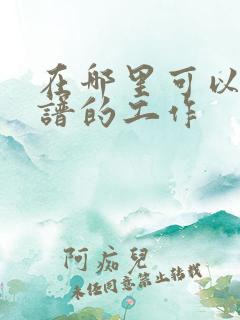 在哪里可以
譜的工作
阿痴兒
未经同意禁止转载